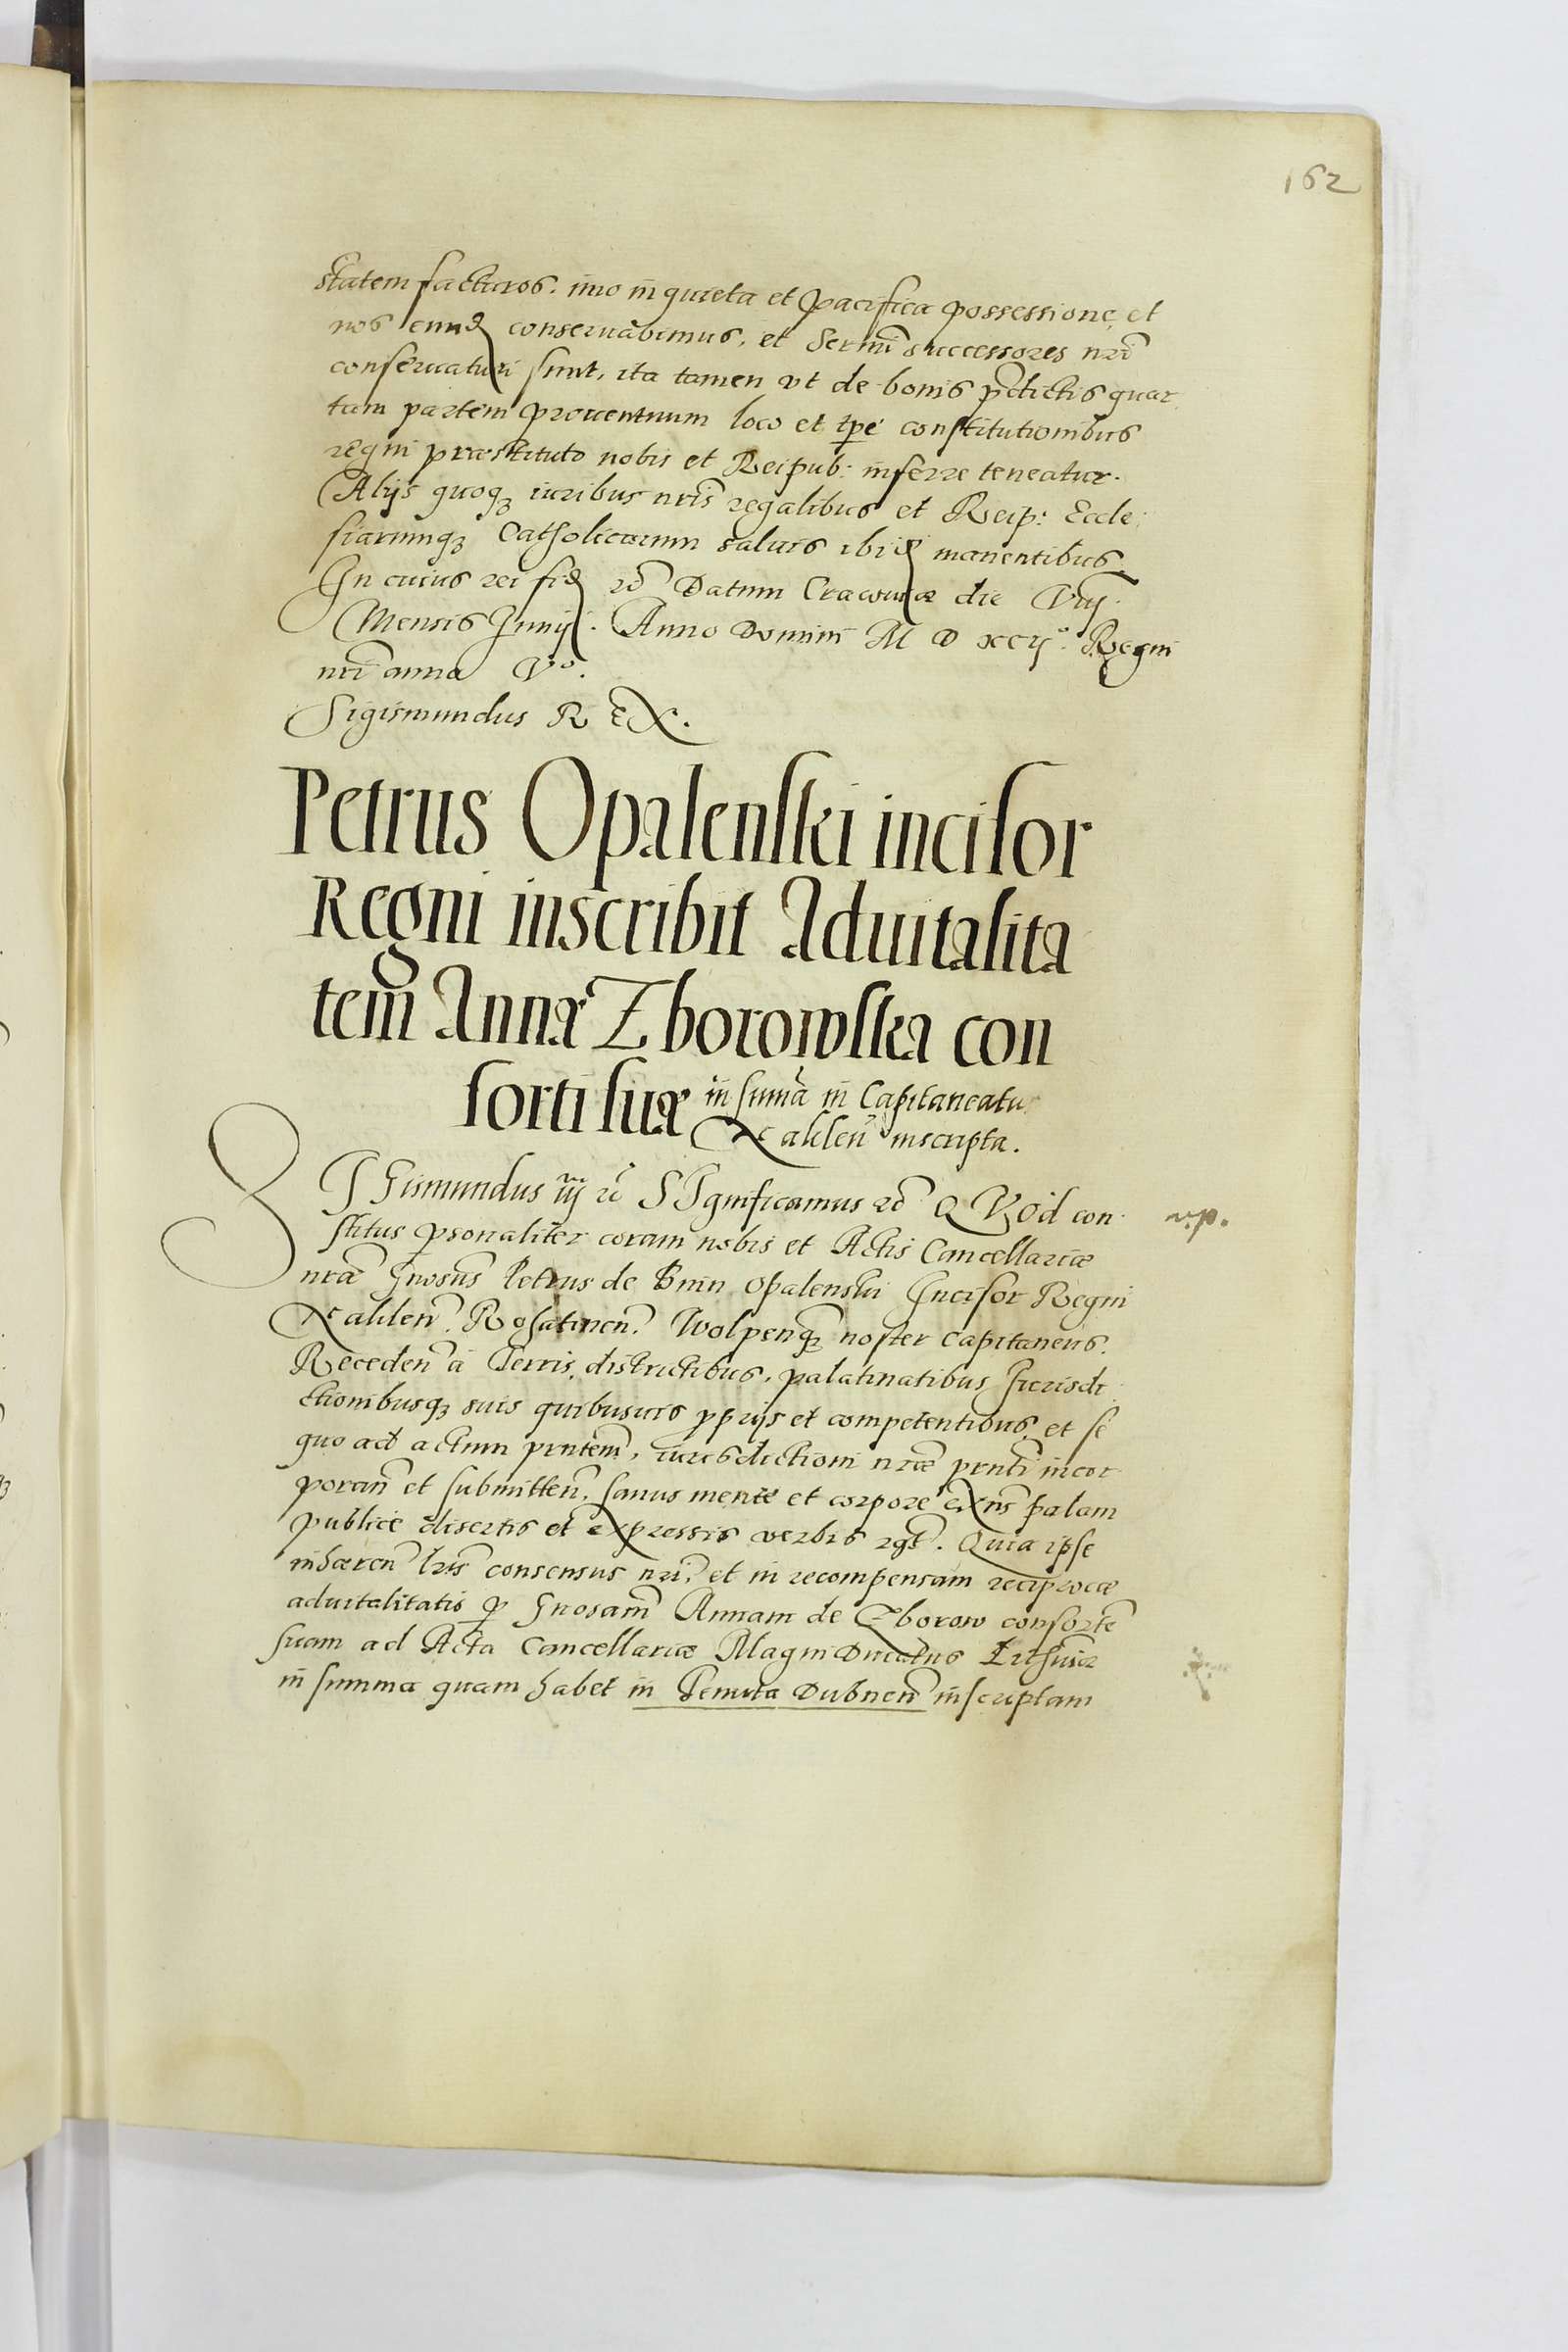 162
statem facturos. imo in quieta et pacifica possessione, et
nos eund conseruabimus, et Sermi successores nri
conseruaturi sunt, ita tamen vt de bonis pdictis quar
tam partem prouentuum loco et tpe constitutionibus
regni præstituto nobis et Reipub: inferre teneatur.
Alijs quoq iuribus nris regalibus et Reip: Eccle
siarumq Catholicarum saluis ibid manentibus.
In cuius rei fid rc Datum Cracouiæ die Viij
Mensis Junij. Anno Domini M D XCij° Regni
nri anno V°.
Sigismundus R EX.
Petrus Opalenski incisor
Regni inscribit Aduitalita
tem Annæ Zborowska con
sorti suæ in suma in Capitaneatu
Xalilen inscripta.
SIGismundus iij rc SIgnificamus rc QVod con
stitus psonaliter coram nobis et Actis Cancellariæ
v.p.
nræ Gnosus Petrus de Bnin Opalenski Incisor Regni
Xalilen. Rohatinen. Wolpenq noster Capitaneus.
Receden a Terris, districtibus, palatinatibus Jurisdi
ctionibusq suis quibusuis pprijs et competentibus, et se
quo ad actum pntem, iurisdictioni nræ pnti incor
poran et submitten. sanus mente et corpore exns palam
publice disertis et expressis verbis rgt. Quia ipse
inhæren lris consensus nri, et in recompensam reciprocæ
aduitalitatis p Gnosam Annam de Zborow consorte
suam ad Acta Cancellariæ Magni Ducatus Lithuiæ
in summa quam habet in Tenuta Dubnen inscriptam